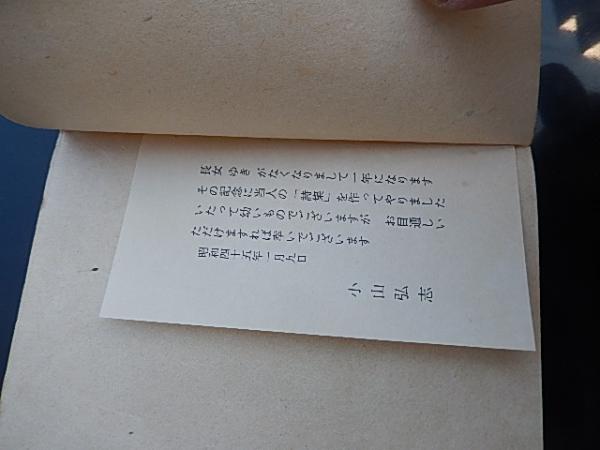 長女 ゆき がなくなりまして一年になります
その記念に当人の「詩集」を作ってやりました
いたって幼いものでございますが お目通しい
ただけますれば幸いでございます
昭和四十五年一月九日
小山弘志